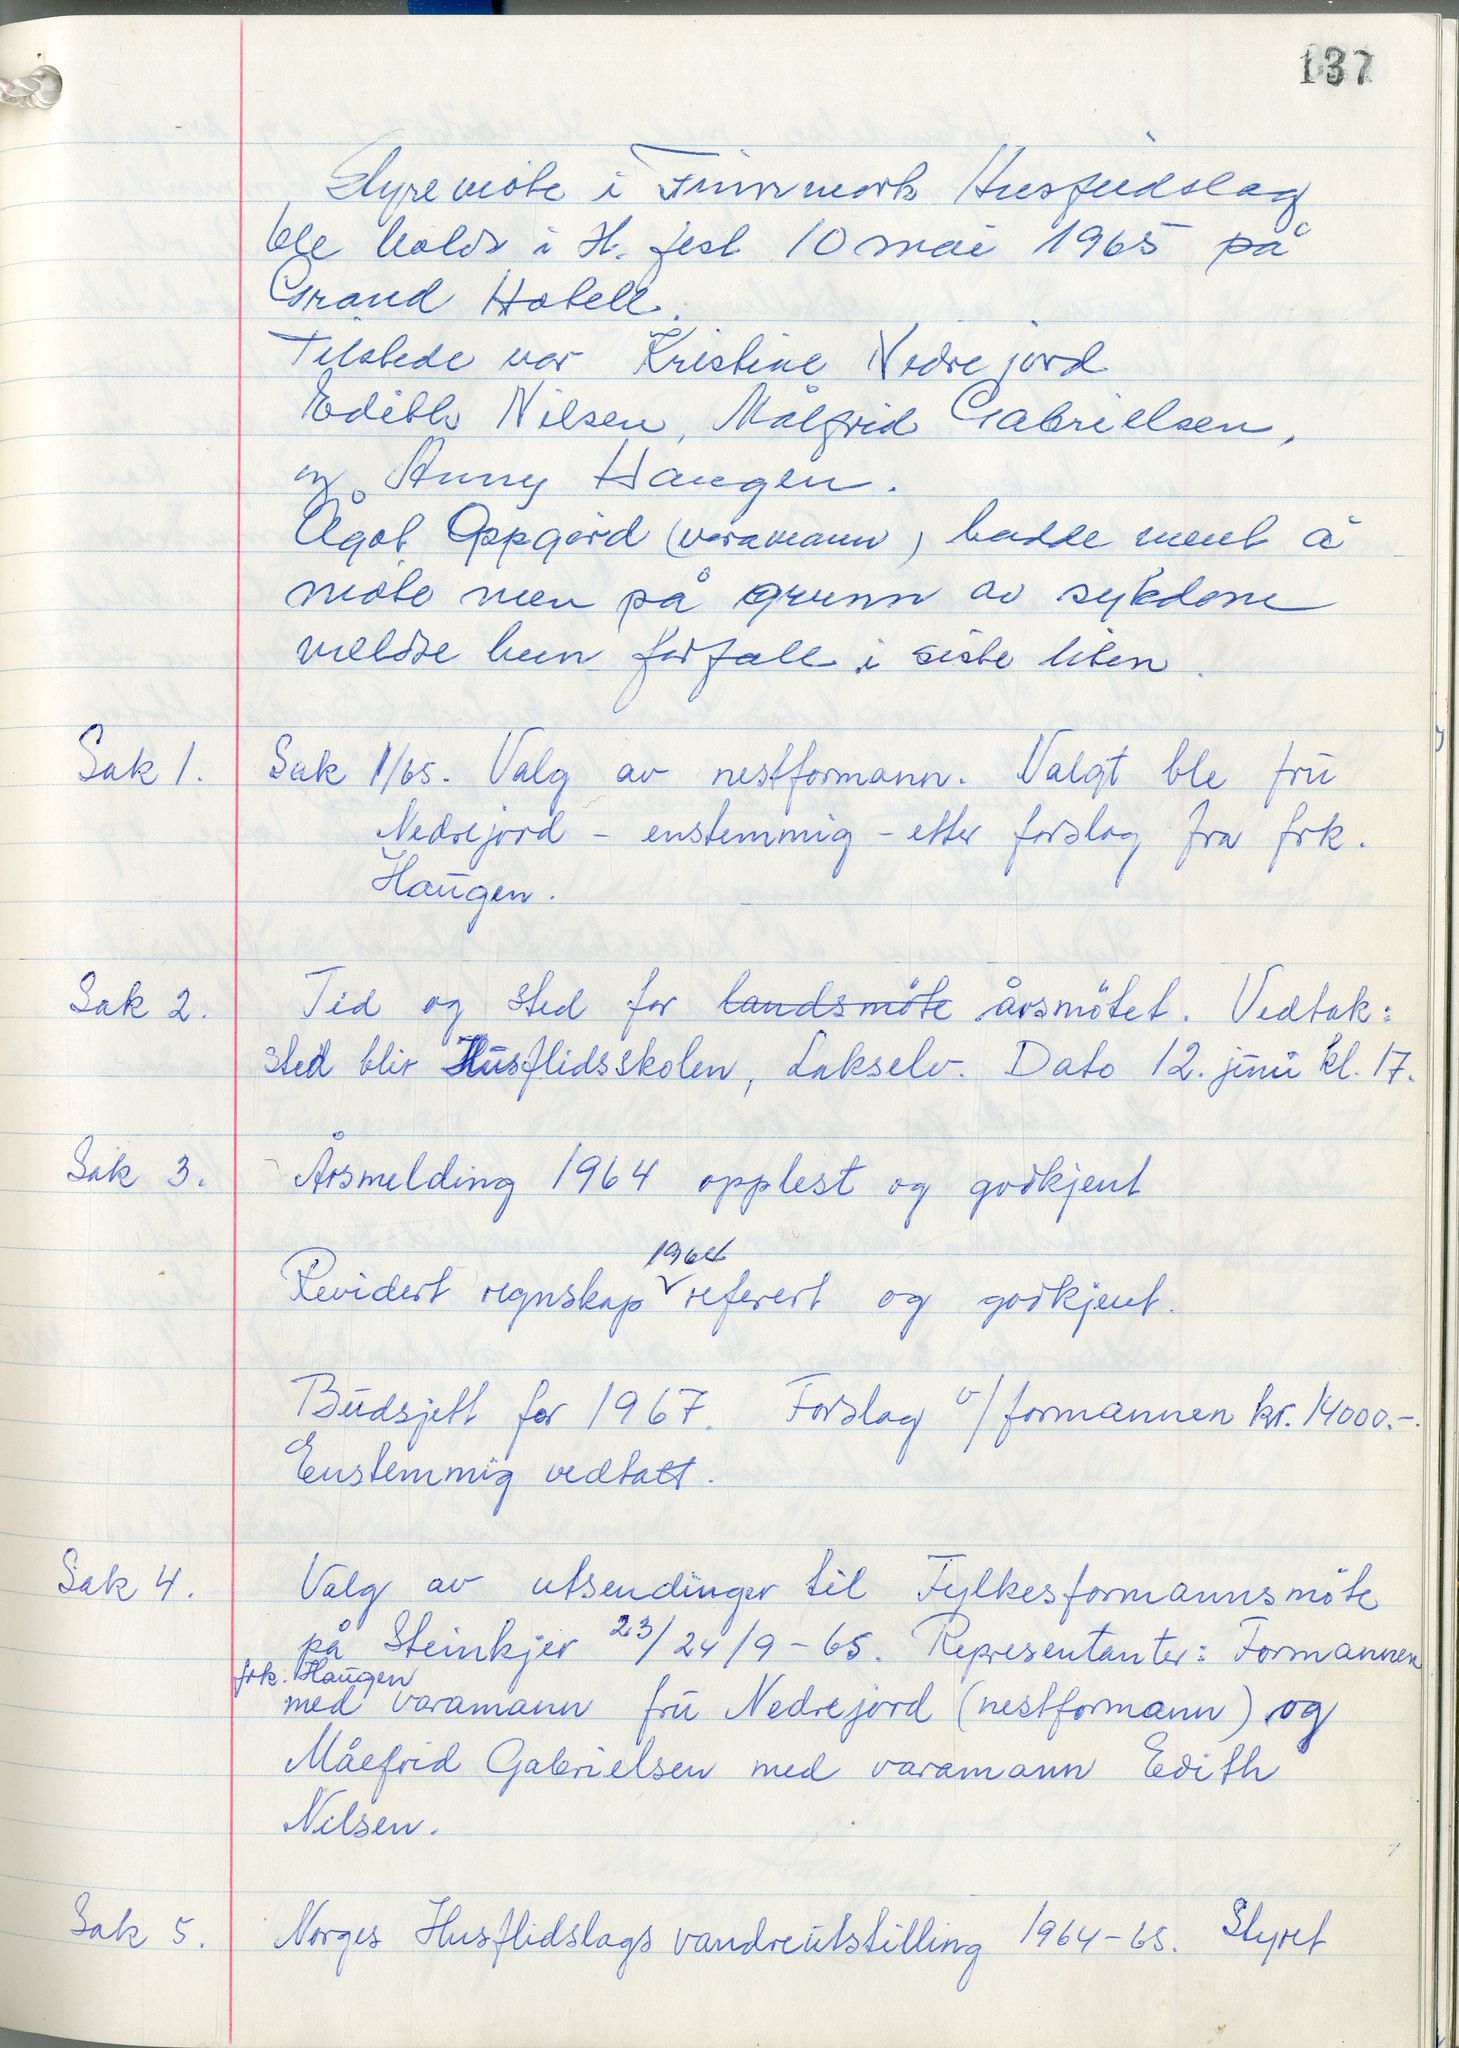 137
Styremøte i Finnmark Husflidslag
ble holdt i H. fest 10 mai 1965 på
Grand Hotell.
Tilstede var Kristine Nedrejord
Edith Nilsen, Målfrid Gabrielsen,
og Anny Haugen.
Ågot Oppgård (varamann) hadde ment å
møte men på grunn av sykdom
meldte hun forfall i siste liten.
Sak 1. Sak 1/65. Valg av nestformann. Valgt ble fru
Nedrejord – enstemmig – etter forslag fra frk.
Haugen.
Sak 2. Tid og sted for landsmöte årsmötet. Vedtak:
sted blir Husflidsskolen, Lakselv. Dato 12. juni kl. 17.
Sak 3. Årsmelding 1964 opplest og godkjent
1964
Revidert regnskap referert og godkjent.
Budsjett for 1967. Forslag v/formannen kr. 14000.-.
Enstemmig vedtatt.
Sak 4. Valg av utsendinger til Fylkesformannsmöte
på Steinkjer 23/24/9-65. Representanter: Formannen
frk. Haugen
med varamann fru Nedrejord (nestformann) og
Målfrid Gabrielsen med varamann Edith
Nilsen.
Sak 5. Norges Husflidslags vandreutstilling 1964-65. Styret